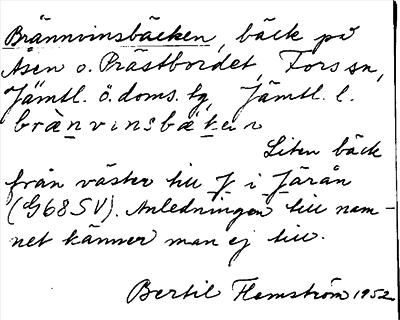 Brännvinsbäcken, bäck på
Åsen o. Prästbordet, Fors sn,
Jämtl. ö. doms. tg, Jämtl. l.
bränvinsbäken
Liten bäck
från väster till J i Järån
(G68SV). Anledningen till nam-
net känner man ej till.
Bertil Flemström 1952